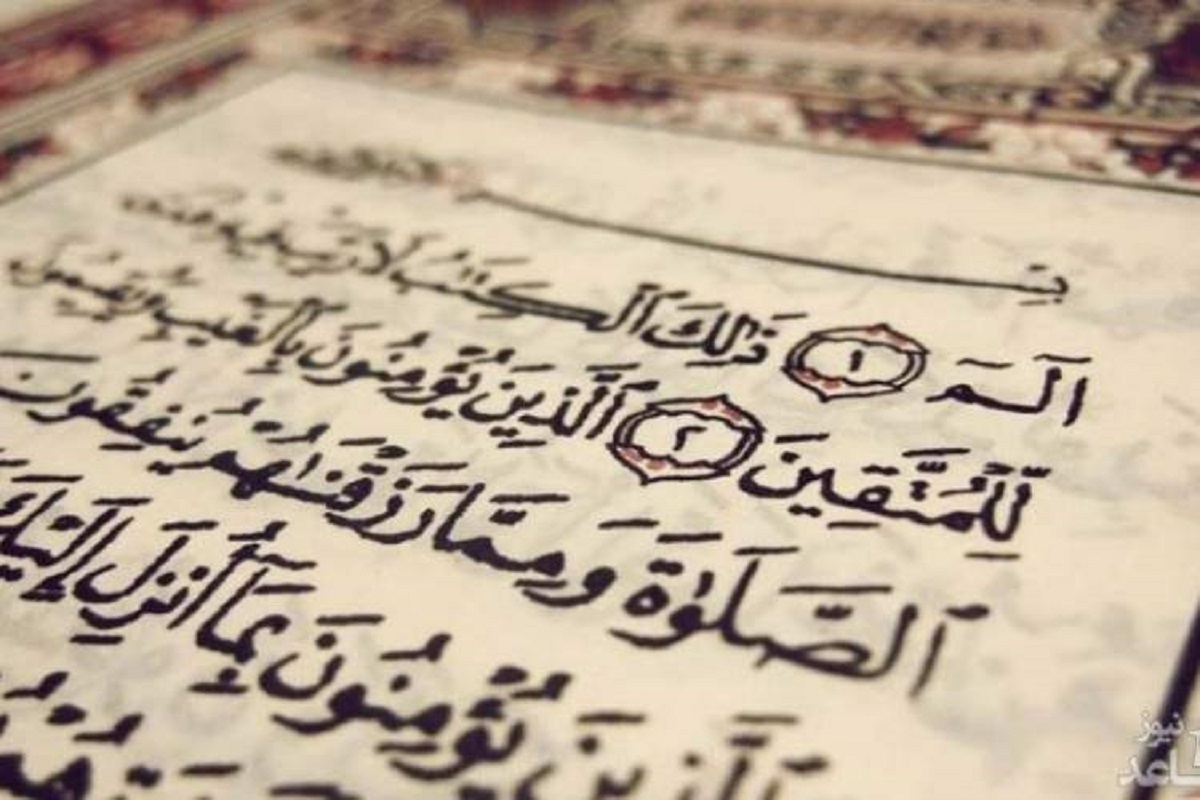 بِسْمِ
الٓمٓ ١ ذَٰلِكَ ٱلْكِتَٰبُ لَا رَيْبَ فِيهِ هُدًى
لِّلْمُتَّقِينَ ٢ ٱلَّذِينَ يُؤْمِنُونَ بِٱلْغَيْبِ وَيُقِيمُونَ
ٱلصَّلَوٰةَ وَمِمَّا رَزَقْنَٰهُمْ يُنفِقُونَ
ٱلَّذِينَ يُؤْمِنُونَ بِمَآ أُنزِلَ إِلَيْكَ
نیوز